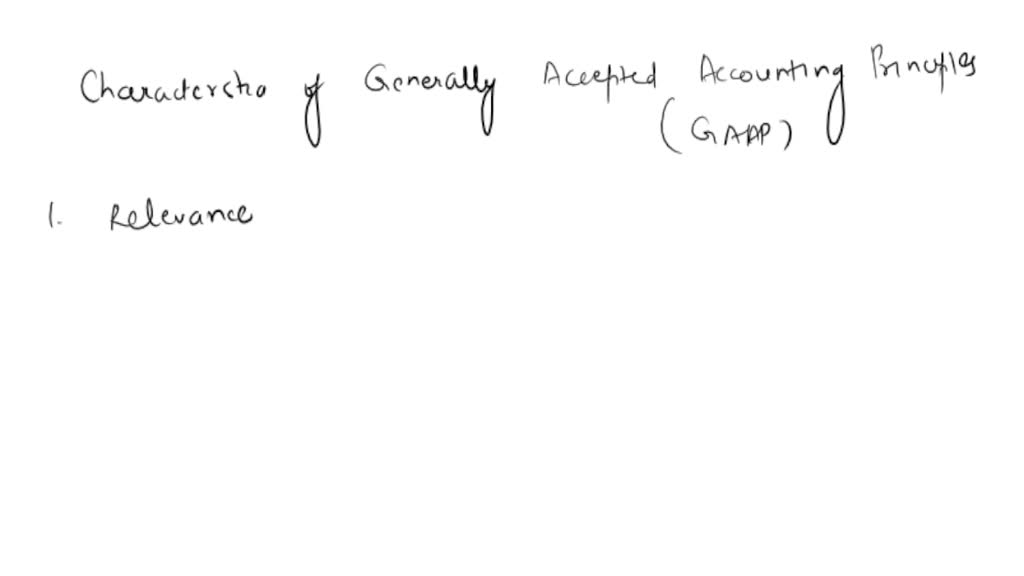 Characterstic of Generally Accepted Accounting Principles
(GAAP)
1. Relevance